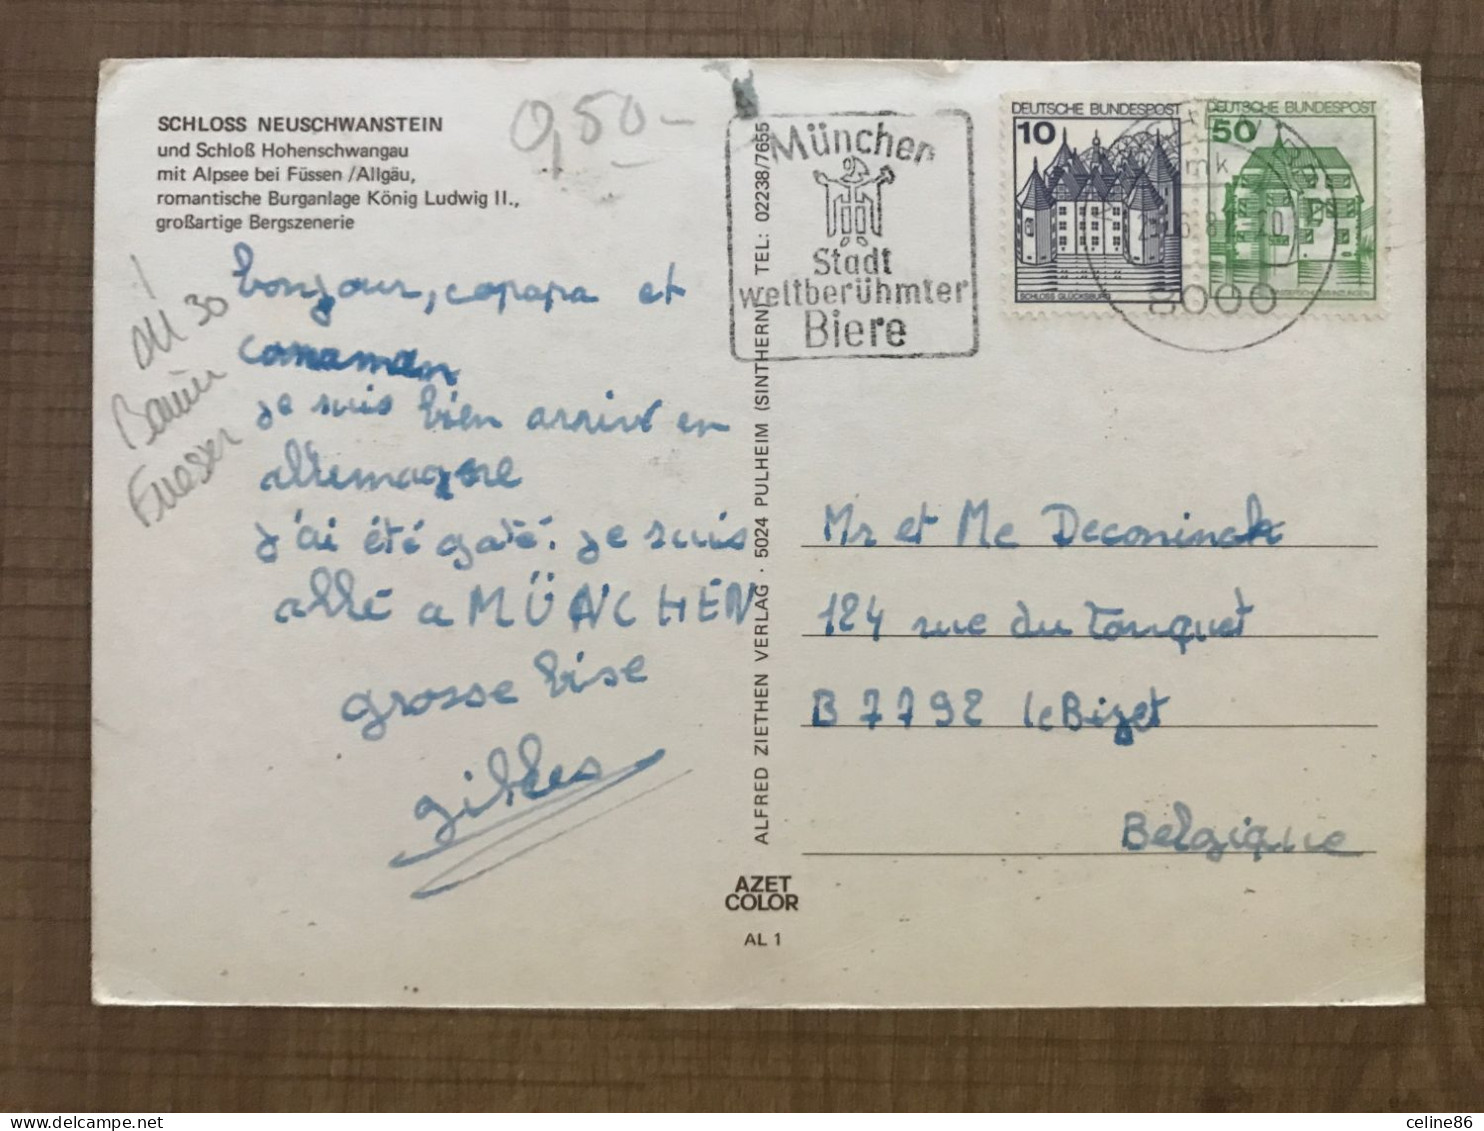 SCHLOSS NEUSCHWANSTEIN
und Schloß Hohenschwangau
mit Alpsee bei Füssen /Allgäu,
romantische Burganlage König Ludwig II.,
großartige Bergszenerie
0,50-
All 30
Füssen
bonjour, copapa et
comaman
je suis bien arrivé en
allemagne
j'ai été gaté. je suis
allé a MÜNCHEN
grosse bise
gilles
ALFRED ZIETHEN VERLAG · 5024 PULHEIM (SINTHERN) · TEL: 02238/7655
AZET
COLOR
AL 1
München
Stadt
weltberühmter
Biere
DEUTSCHE BUNDESPOST
10
SCHLOSS GLÜCKSBURG
DEUTSCHE BUNDESPOST
50
8000
Mr et Me Deconinck
124 rue du Touquet
B 7792 le Bizet
Belgique
celine86